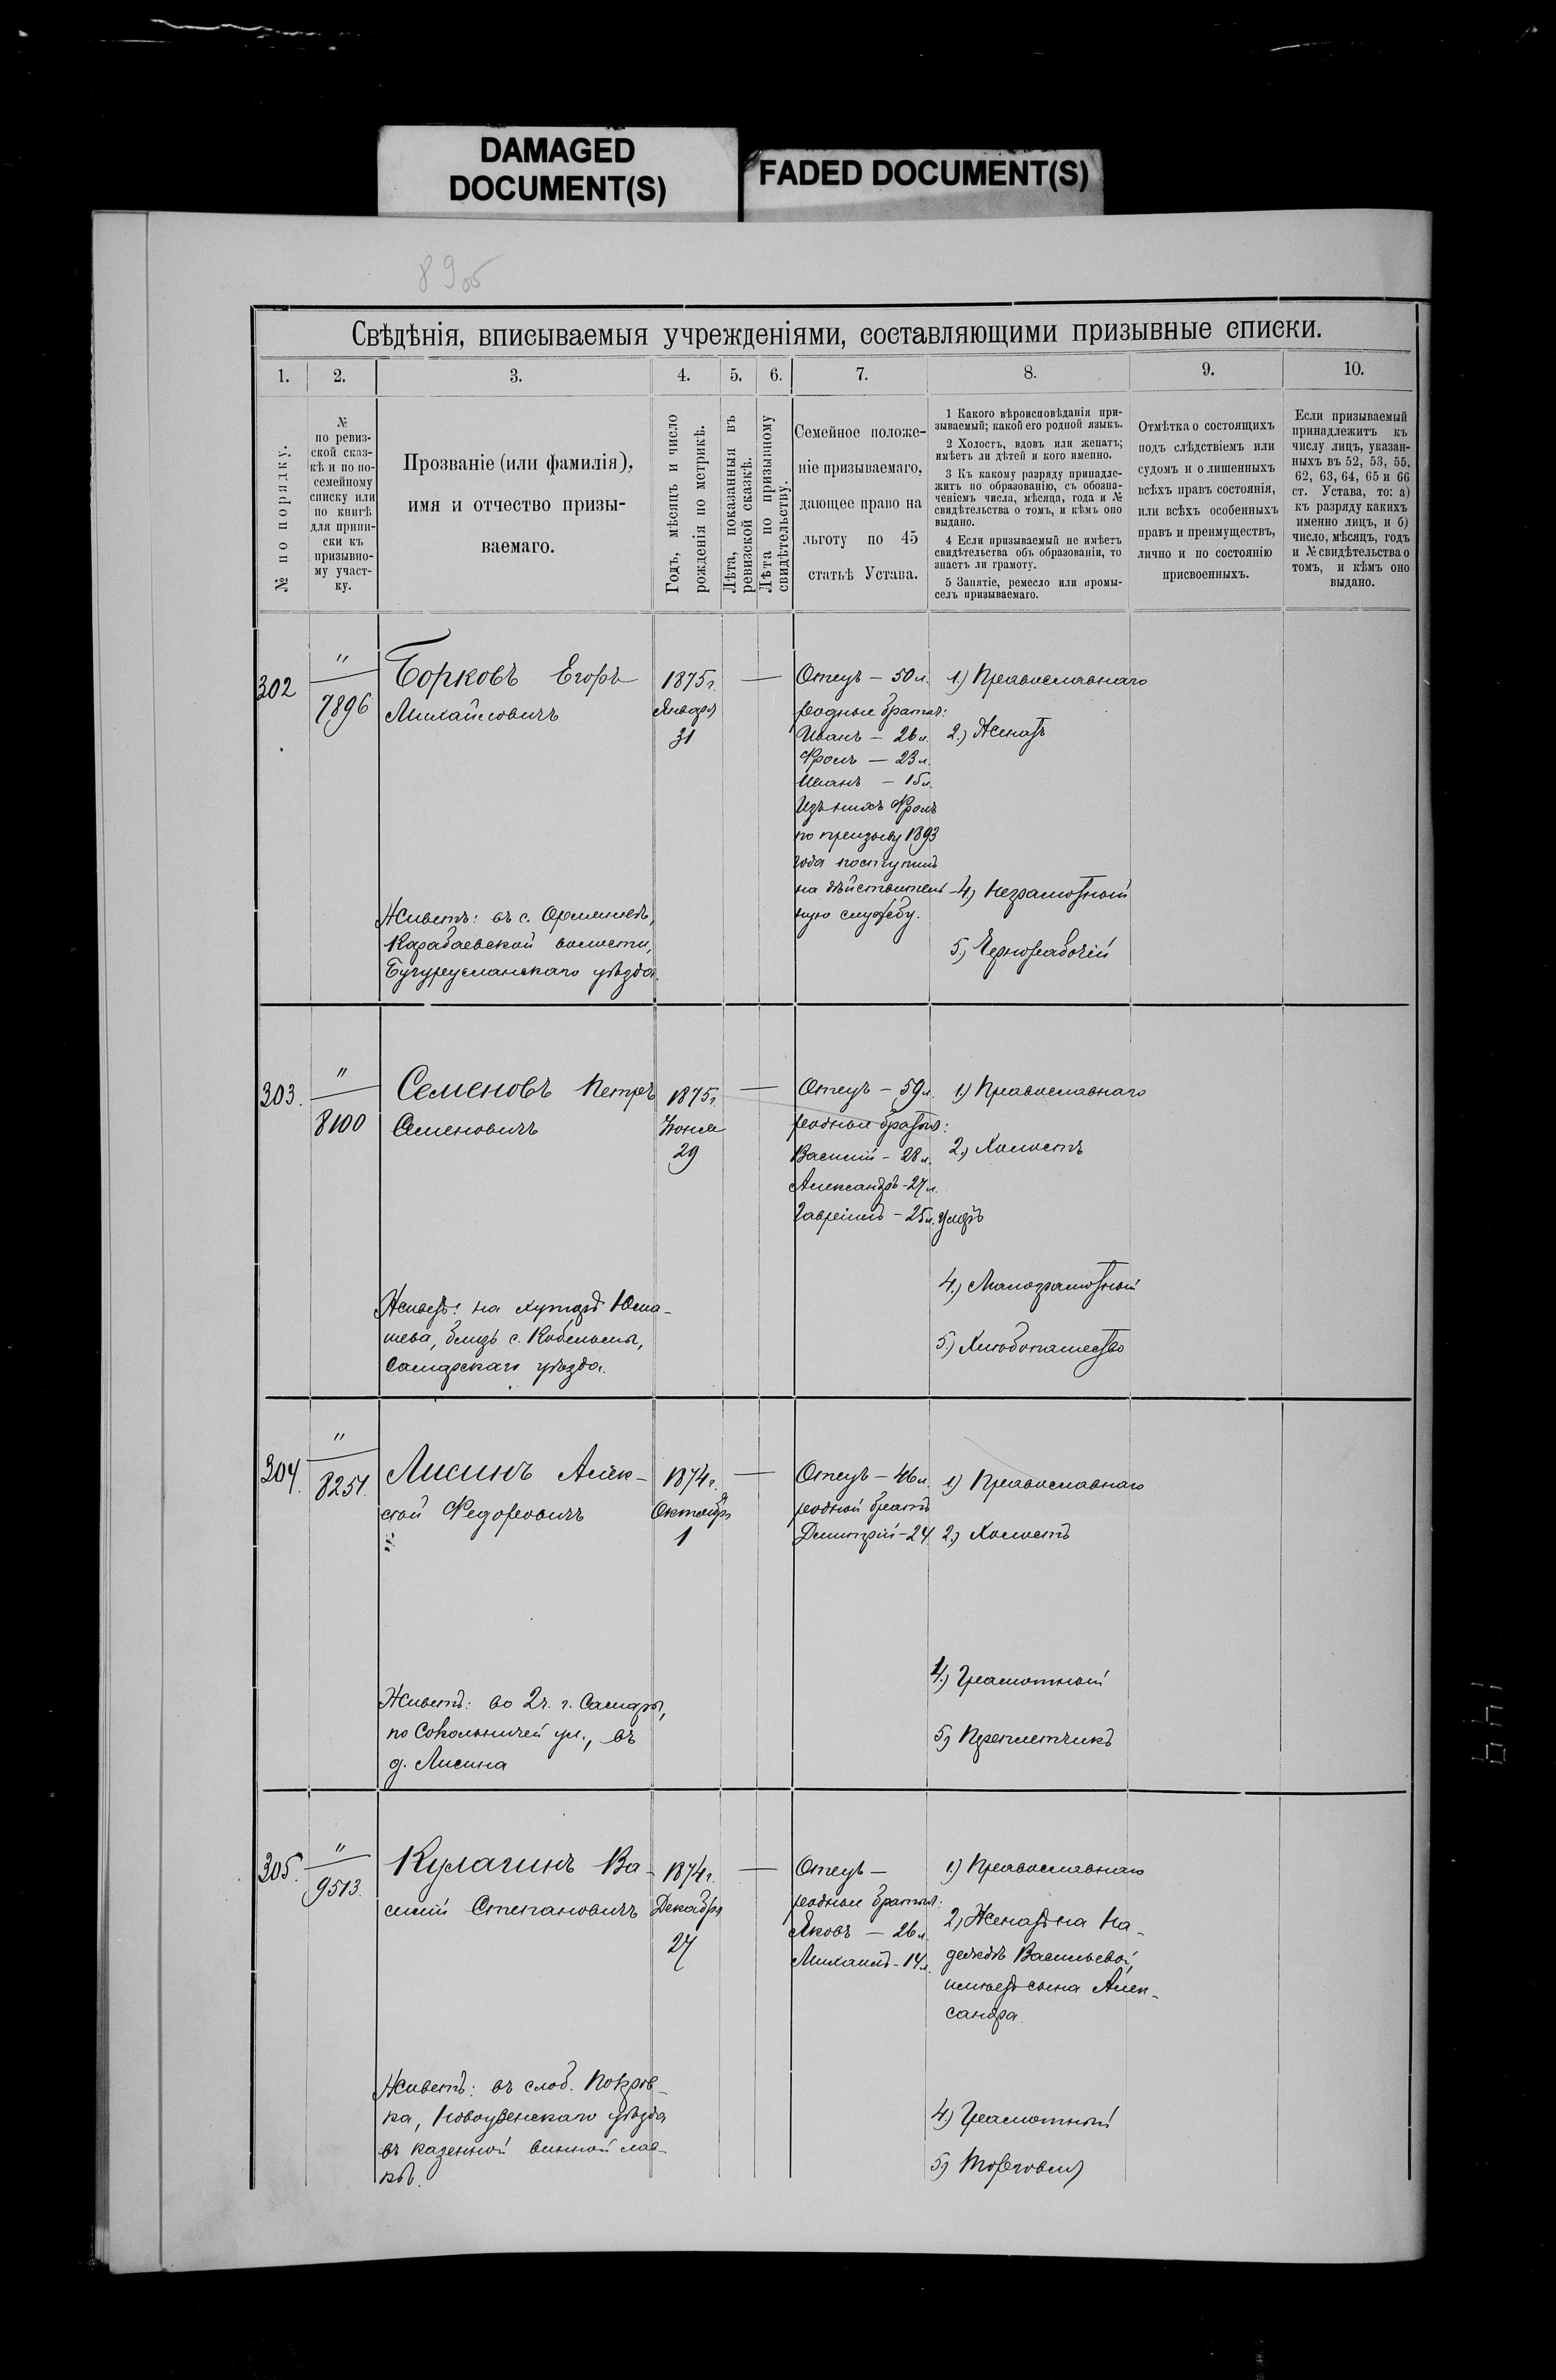 DAMAGED
DOCUMENT(S)
FADED DOCUMENT(S)
8905
Свѣдѣнія, вписываемыя учрежденіями, составляющими призывные списки.
1.
2.
3.
4.
5.
6.
7.
8.
9.
10.
№ по порядку.
№
по ревиз-
ской сказ-
кѣ и по по-
семейному
списку или
по книгѣ
для припи-
ски къ
призывно-
му участ-
ку.
Прозваніе (или фамилія),
имя и отчество призы-
ваемаго.
Годъ, мѣсяцъ и число
рожденія по метрикѣ.
Лѣта, показанныя въ
ревизской сказкѣ.
Лѣта по призывному
свидѣтельству.
Семейное положе-
ніе призываемаго,
дающее право на
льготу по 45
статьѣ Устава.
1 Какого вѣроисповѣданія при-
зываемый; какой его родной языкъ.
2 Холостъ, вдовъ или женатъ;
имѣетъ ли дѣтей и кого именно.
3 Къ какому разряду принадле-
житъ по образованію, съ обозна-
ченіемъ числа, мѣсяца, года и №
свидѣтельства о томъ, и кѣмъ оно
выдано.
4 Если призываемый не имѣетъ
свидѣтельства объ образованіи, то
знаетъ ли грамоту.
5 Занятіе, ремесло или промы-
селъ призываемаго.
Отмѣтка о состоящихъ
подъ слѣдствіемъ или
судомъ и о лишенныхъ
всѣхъ правъ состоянія,
или всѣхъ особенныхъ
правъ и преимуществъ,
лично и по состоянію
присвоенныхъ.
Если призываемый
принадлежитъ къ
числу лицъ, указан-
ныхъ въ 52, 53, 55,
62, 63, 64, 65 и 66
ст. Устава, то: а)
къ разряду какихъ
именно лицъ, и б)
число, мѣсяцъ, годъ
и № свидѣтельства о
томъ, и кѣмъ оно
выдано.
302
"
7896
Борковъ Егоръ
Михайловичъ
Живетъ: въ с.
Карабаевской волости,
Бугурусланскаго уѣзда.
1875 г.
Января
31
—
Отецъ — 50 л.
родные братья:
Иванъ — 26 л.
Фролъ — 23 л.
Иванъ — 15 л.
Изъ нихъ Фролъ
по призыву 1893
года поступилъ
на дѣйствитель-
ную службу.
1) Православнаго
2) Женатъ
4) Неграмотный
5) Чернорабочій
303.
"
8100
Семеновъ Петръ
Семеновичъ
Живетъ: на хуторѣ Юна-
шева, близъ с. Кобельмы,
Самарскаго уѣзда.
1875 г.
Іюня
29
—
Отецъ — 59 л.
родные братья:
Василій — 28 л.
Александръ — 27 л.
Гавріилъ — 25 л. умеръ
1) Православнаго
2) Холостъ
4) Малограмотный
5) Хлѣбопашество
304.
"
8251.
Лисинъ Алек-
сѣй Федоровичъ
Живетъ: во 2 ч. г. Самары,
по Сокольничей ул., въ
д. Лисина
1874 г.
Октября
1
—
Отецъ — 46 л.
родной братъ
Димитрій — 24
1) Православнаго
2) Холостъ
4) Грамотный
5) Переплетчикъ
305.
"
9513.
Кулагинъ Ва-
силій Степановичъ
Живетъ: въ слоб. Покров-
ка, Новоузенскаго уѣзда
въ казенной винной лав-
кѣ.
1874 г.
Декабря
27
—
Отецъ —
родные братья:
Яковъ — 26 л.
Михаилъ — 14 л.
1) Православнаго
2) Женатъ на На-
деждѣ Васильевой,
имѣетъ сына Алек-
сандра.
4) Грамотный
5) Торговля